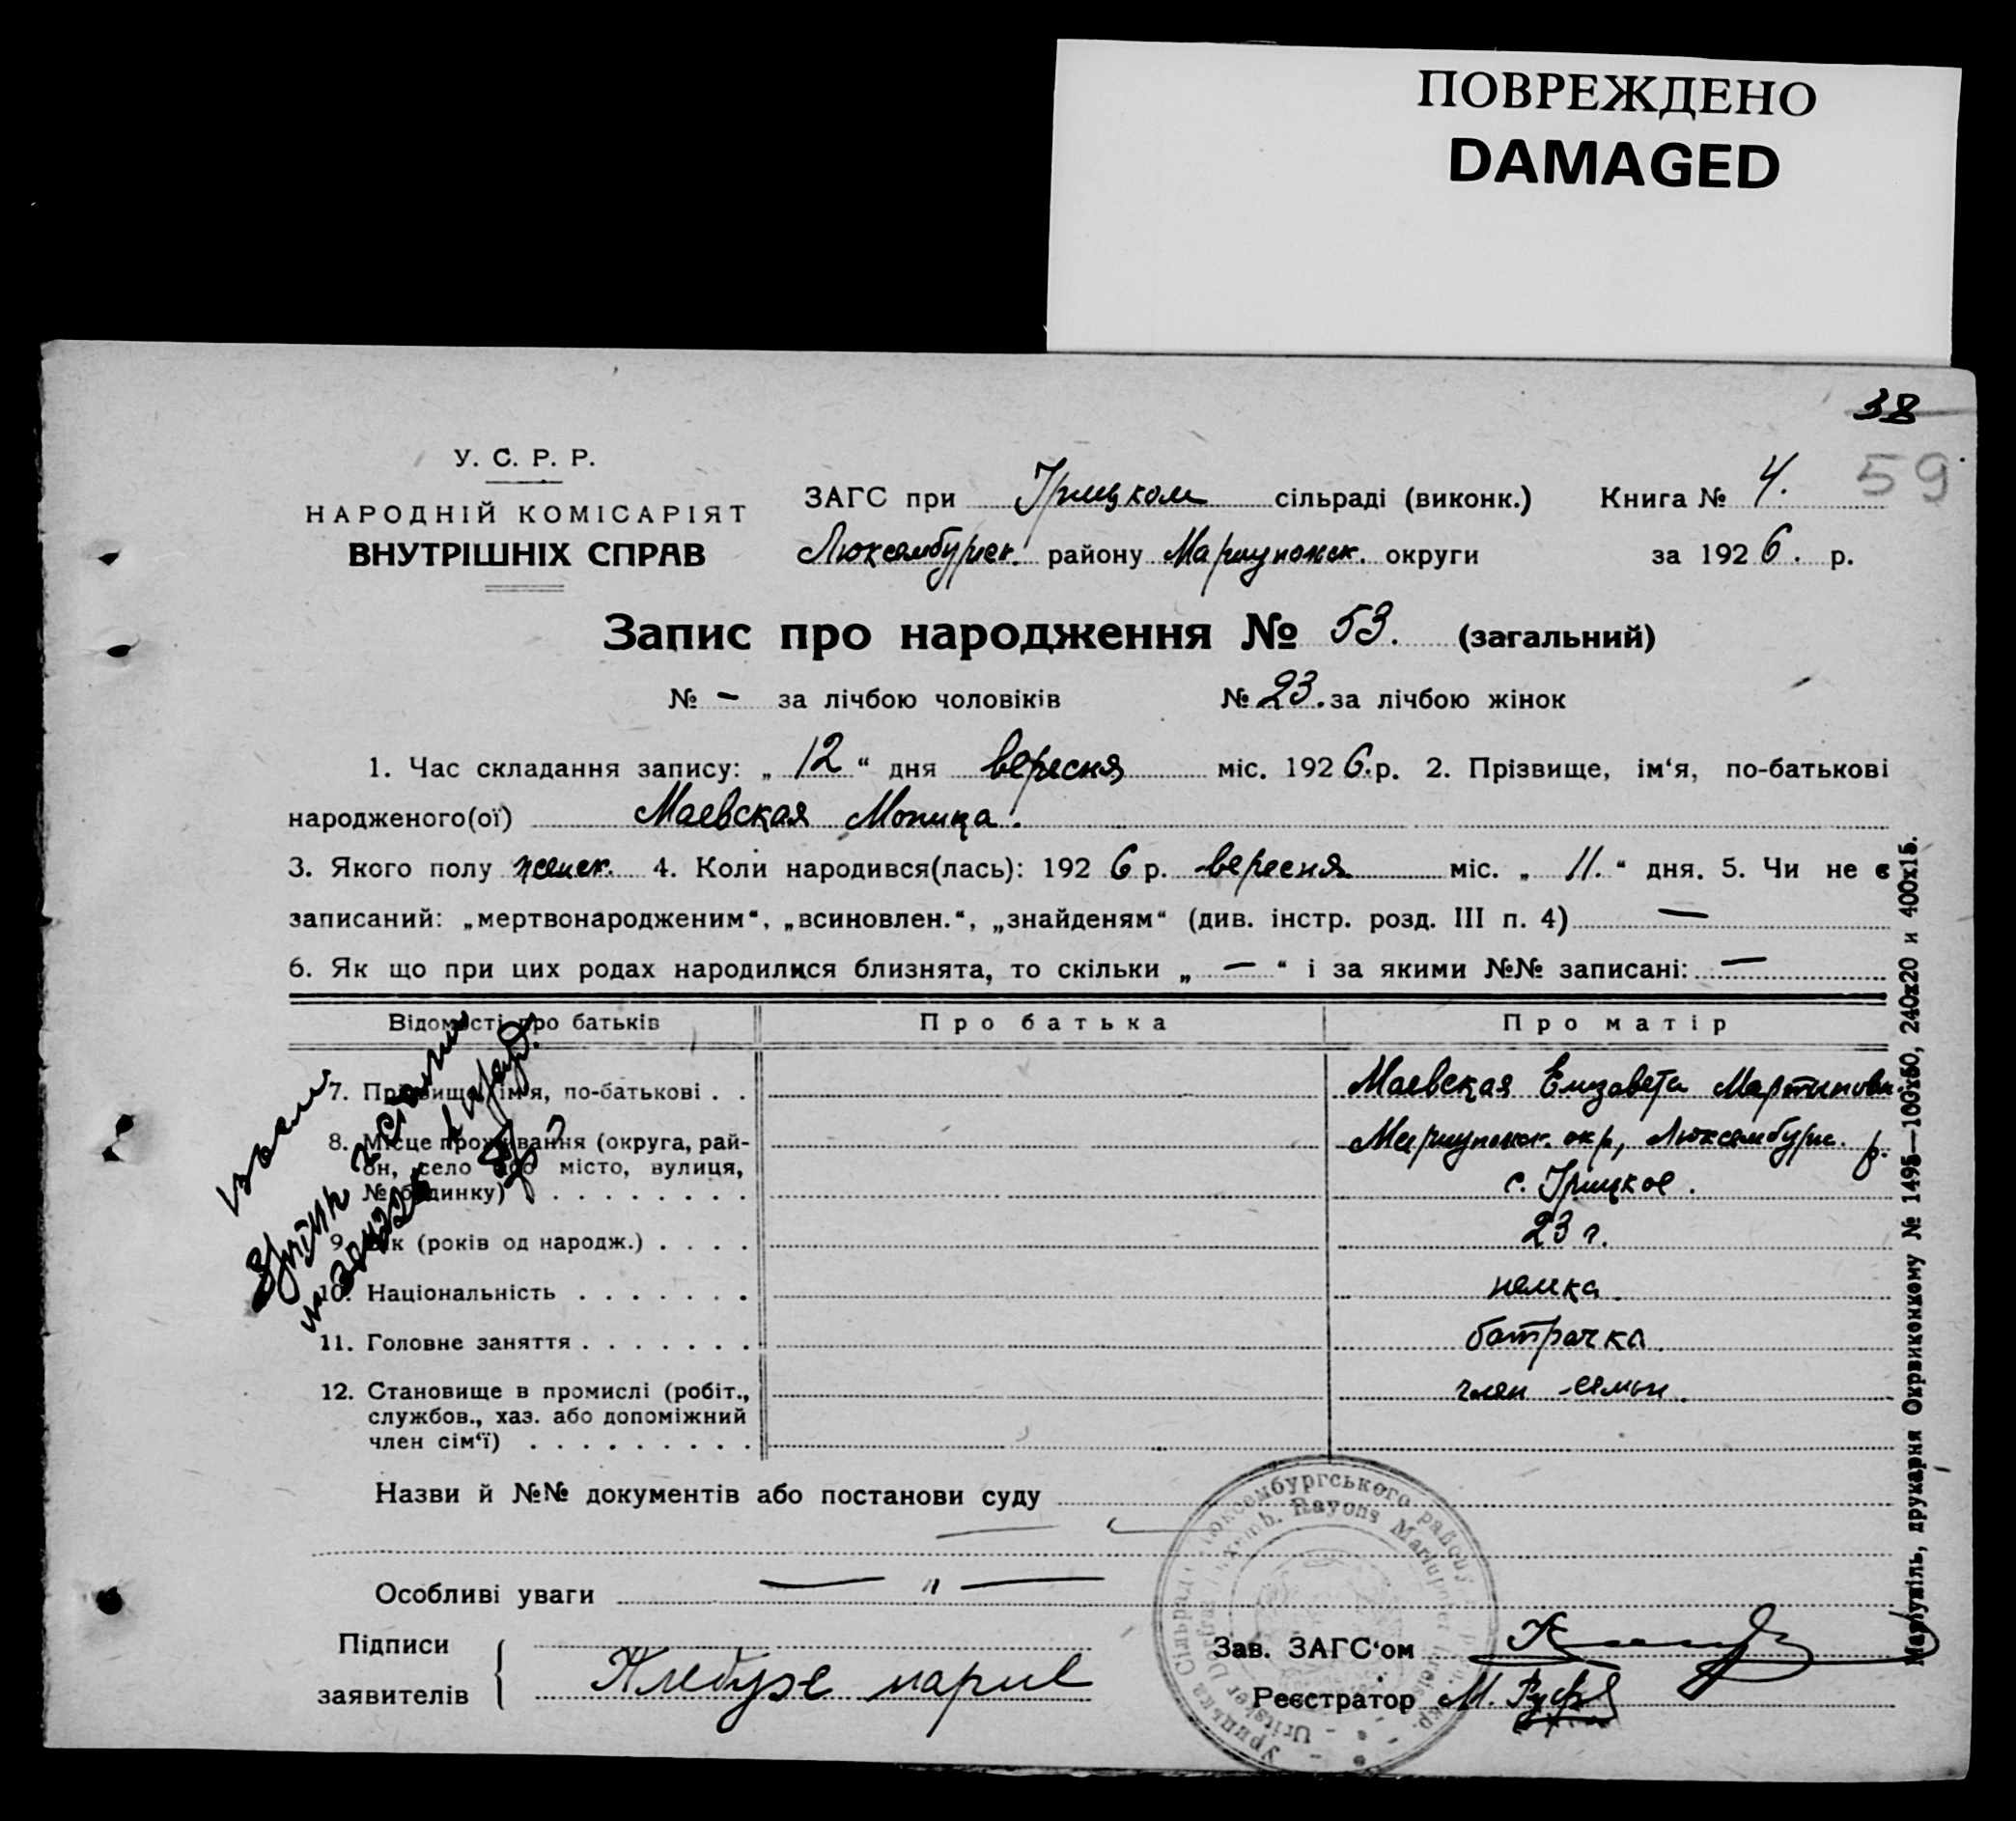 ПОВРЕЖДЕНО
DAMAGED
38
59
У. С. Р. Р.
НАРОДНІЙ КОМІСАРІЯТ
ВНУТРІШНІХ СПРАВ
ЗАГС при Урицком сільраді (виконк.) Книга № 4.
Люксембургск. району Мариупольск. округи за 1926. р.
Запис про народження № 53. (загальний)
№ — за лічбою чоловіків № 23. за лічбою жінок
1. Час складання запису: „12“ дня вересня міс. 1926.р. 2. Прізвище, ім‘я, по-батькові
народженого(ої) Маевская Моница.
3. Якого полу женск. 4. Коли народився(лась): 1926 р. вересня міс. „11.“ дня. 5. Чи не є
записаний: „мертвонародженим“, „всиновлен.“, „знайденям“ (див. інстр. розд. III п. 4) —
6. Як що при цих родах народилися близнята, то скільки „—“ і за якими №№ записані: —
Відомості про батьків Про батька Про матір
7. Прізвище, ім‘я, по-батькові . . Маевская Елизавета Мартиновн.
8. Місце проживання (округа, рай- Мариупольск. окр, Люксембургс. р.
он, село або місто, вулиця, с. Урицкое.
№ будинку) . . . . . . . .
9. Вік (років од народж.) . . . . 23 г.
10. Національність . . . . . . . немка.
11. Головне заняття . . . . . . . батрачка.
12. Становище в промислі (робіт., член семьи.
службов., хаз. або допоміжний
член сім‘ї) . . . . . . . . .
Назви й №№ документів або постанови суду
Особливі уваги — " —
Підписи
заявителів
Зав. ЗАГС‘ом
Реєстратор М.
Урицька Сільрада Люксембургського району
Rayons Mariupoler
Маріупіль, друкарня Окрвиконкому № 1495—100х50, 240х20 и 400х15.